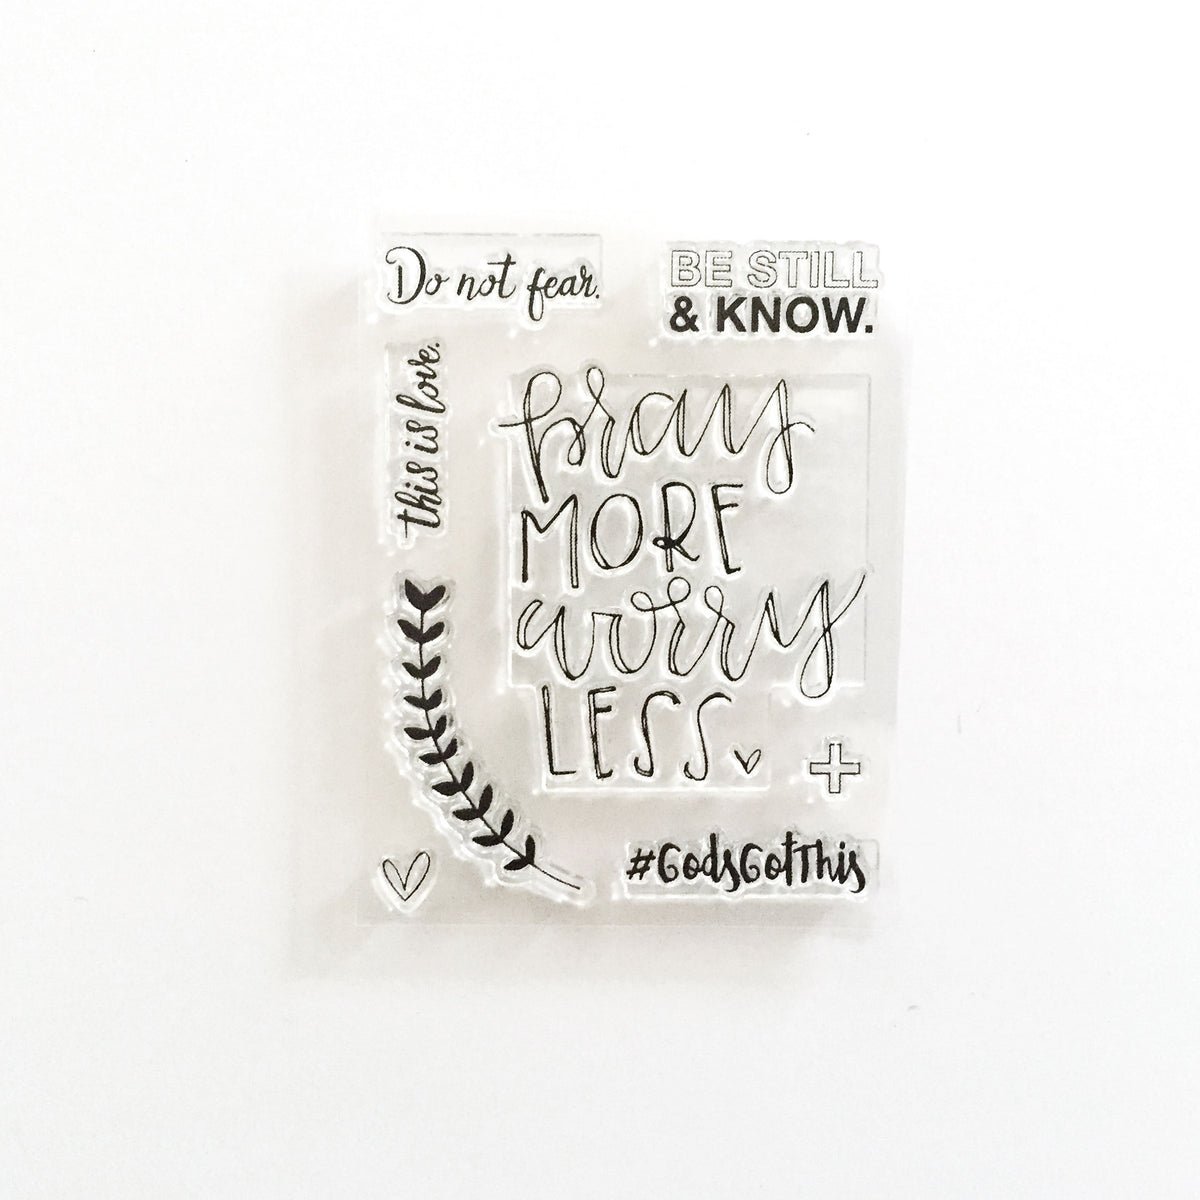 Do not fear.
BE STILL
& KNOW.
this is love.
pray
MORE
worry
LESS.
#GodsGotThis